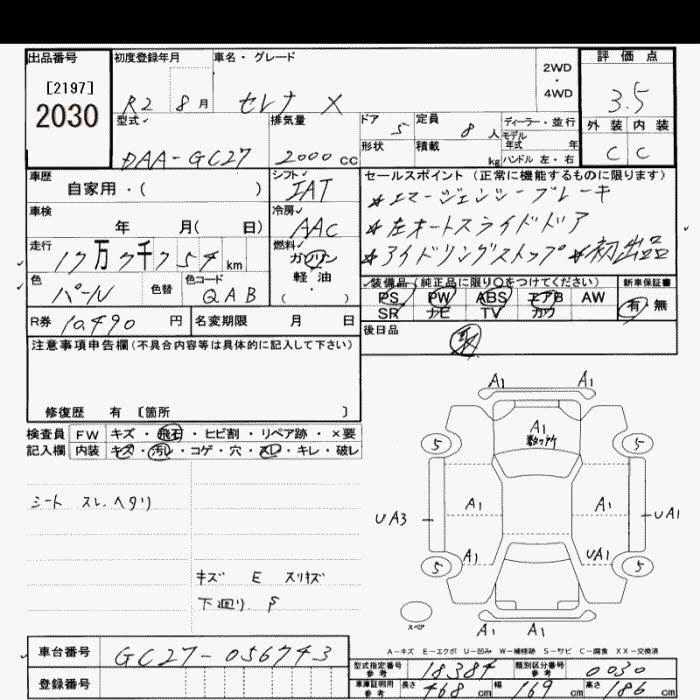 出品番号 初度登録年月 車名・グレード 評価点
[2197]
2030
R2 8月 セレナ X 2WD・4WD 3.5
型式 排気量 ドア 5 定員 8人 ディーラー・並行 外装 内装
DAA-GC27 2000cc 形状 積載 kg モデル年式 年 ハンドル 左・右 C C
車歴 シフト セールスポイント(正常に機能するものに限ります)
自家用・( ) IAT *エマージェンシーブレーキ
車検 冷房 *左オートスライドドア
年 月( 日) AAC *アイドリングストップ *初出品
走行 燃料
17万7千754km ガソリン
軽・油
( )
色 色替 色コード 装備品(純正品に限り○をつけてください) 新車保証書
パール QAB PS PW ABS エアB AW 有・無
SR ナビ TV カワ
R券 10,490円 名変期限 月 日 後日品
取
注意事項申告欄(不具合内容等は具体的に記入して下さい)
修復歴 有 〔箇所 〕
検査員 FW キズ・飛石・ヒビ割・リペア跡・×要
記入欄 内装 キズ・汚レ・コゲ・穴・スレ・キレ・破レ
シート スレ、ヘタリ
キズ E スリキズ
下廻り S
A1 A1
A1
数ヶ所
5 5
A1 A1
UA3 UA1
A1 UA1
5 5
スペア
A1 A1
A-キズ E-エクボ U-凹み W-補修跡 S-サビ C-腐食 XX-交換済
車台番号 GC27-056743
型式指定番号 参考 18384 類別区分番号 参考 0030
登録番号
車庫証明用 参考 長さ 468cm 幅 169cm 高さ 186cm